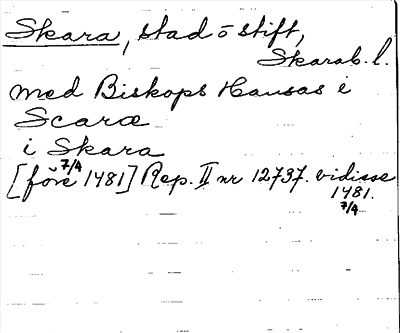 Skara, stad o stift,
Skarab. l.
med Biskops Hansas i
Scaræ
i Skara
[före 7/4 1481] Rep. II nr 12737. vidisse
1481.
7/4